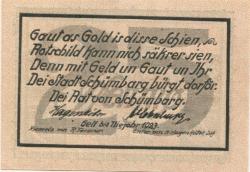 Gaut as Gold is disse Schien,
Rotschild kann nich säkrer sien,
Denn mit Geld un Gaut un Ihr
Dei Stadt Schümbarg bürgt dorför.
Dei Rat von Schümbarg.
Gelt bis Niejohr 1923